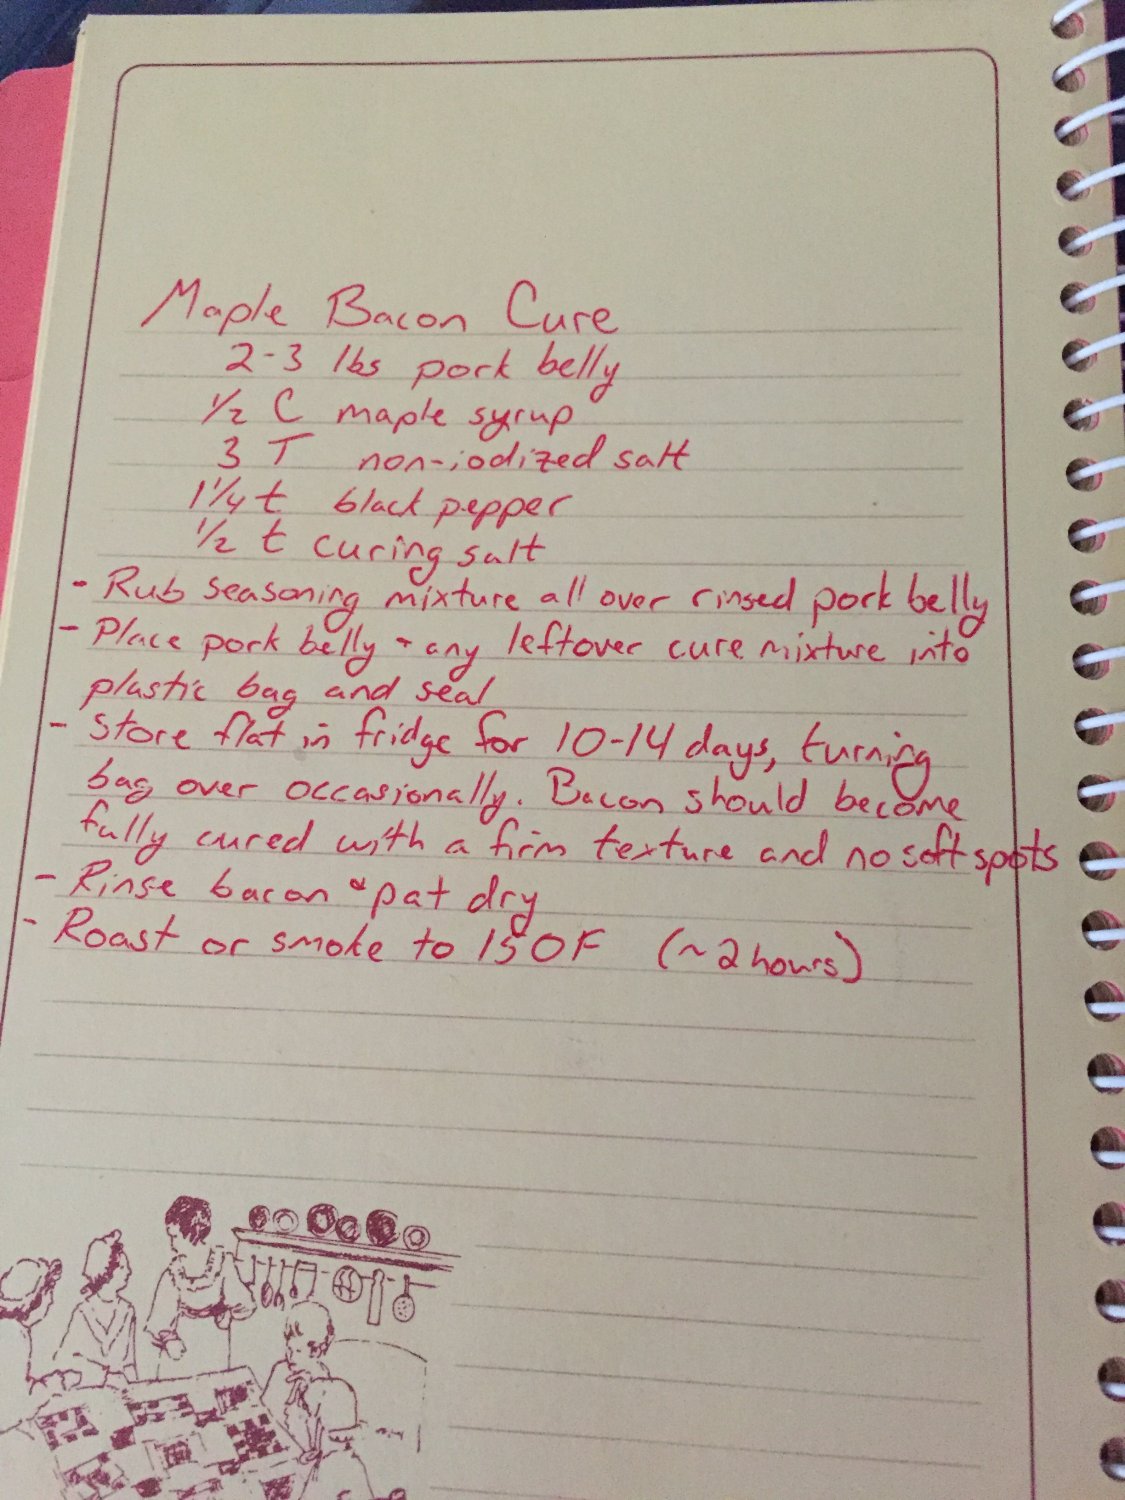 Maple Bacon Cure
2-3 lbs pork belly
1/2 C maple syrup
3 T non-iodized salt
1 1/4 t black pepper
1/2 t curing salt
- Rub seasoning mixture all over rinsed pork belly
- Place pork belly + any leftover cure mixture into
plastic bag and seal
- Store flat in fridge for 10-14 days, turning
bag over occasionally. Bacon should become
fully cured with a firm texture and no soft spots
- Rinse bacon & pat dry
- Roast or smoke to 150F (~2 hours)